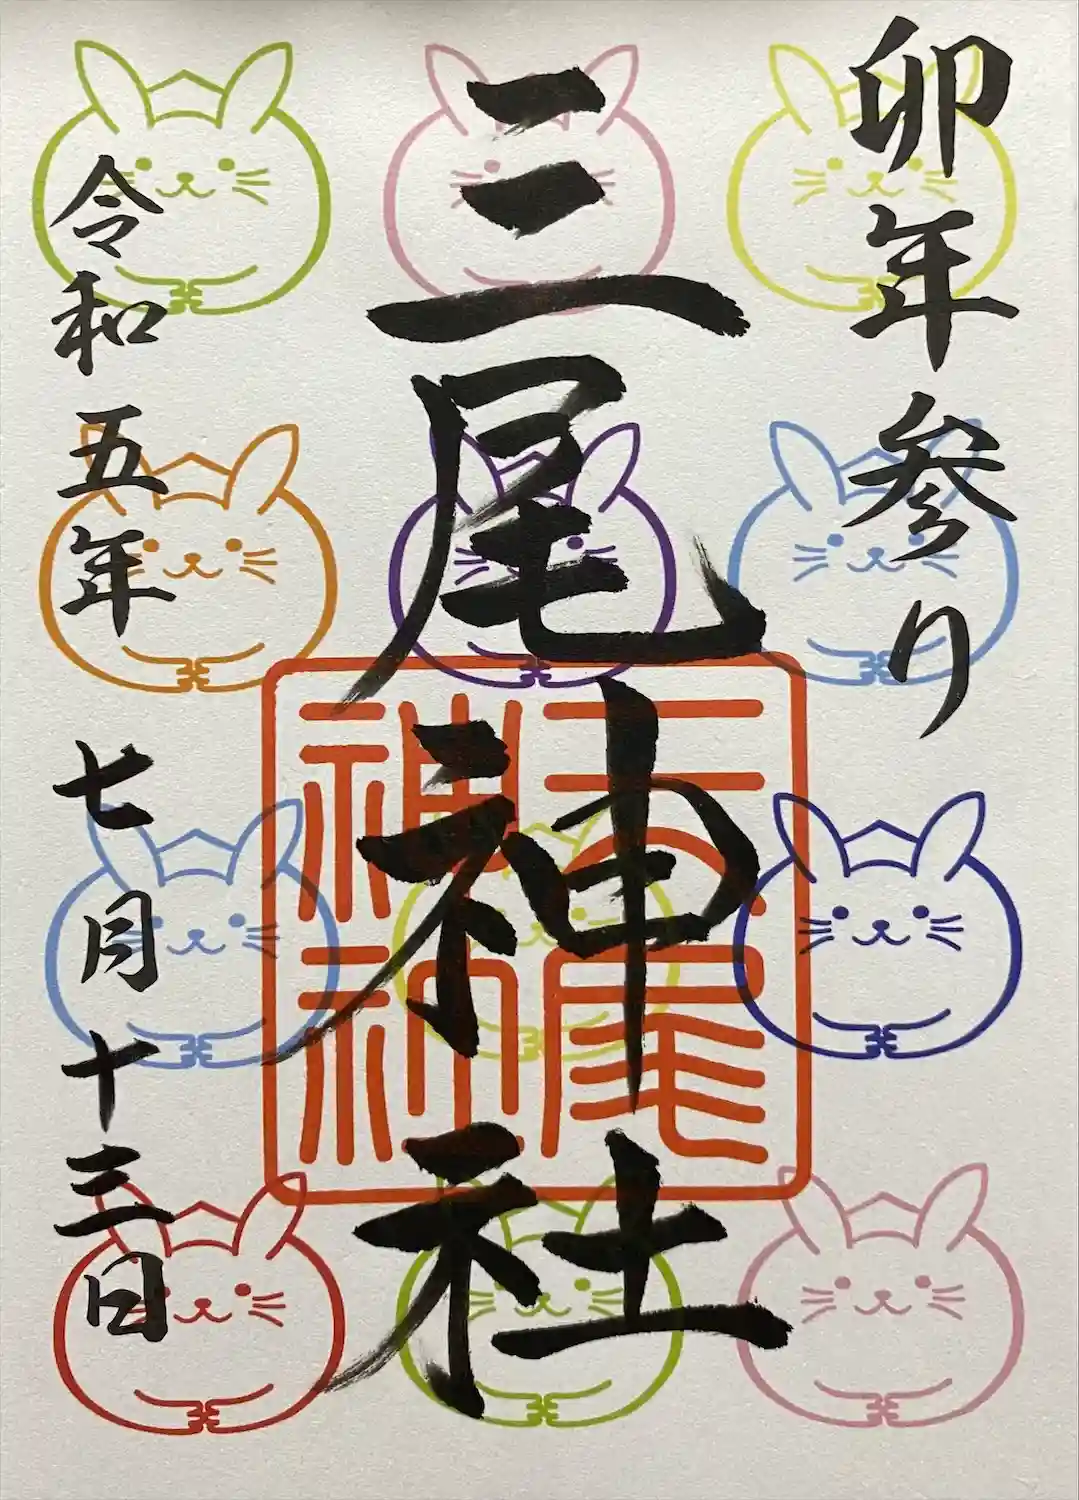 卯年参り
三尾神社
三尾神社
令和五年七月十三日